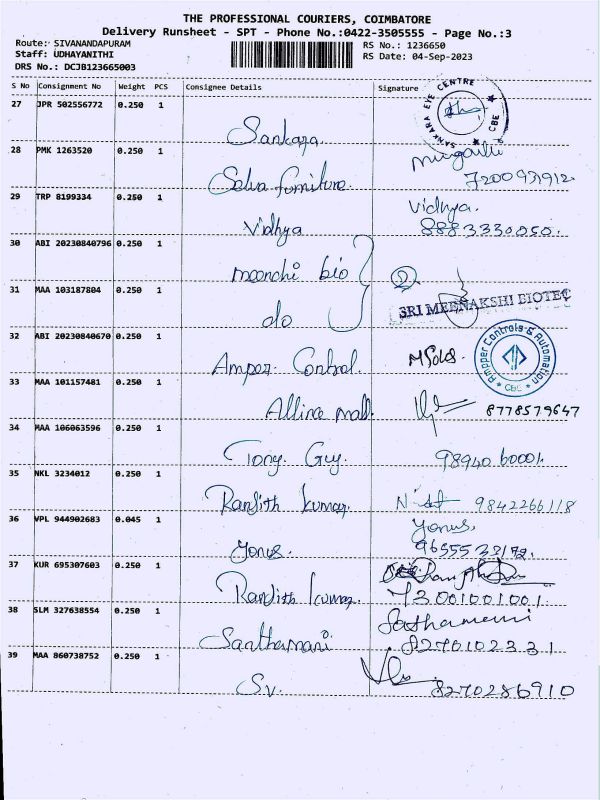 THE PROFESSIONAL COURIERS, COIMBATORE
Delivery Runsheet - SPT - Phone No.:0422-3505555 - Page No.:3
Route: SIVANANDAPURAM
RS No.: 1236650
Staff: UDHAYANITHI
RS Date: 04-Sep-2023
DRS No.: DCJB123665003
S No Consignment No Weight PCS Consignee Details Signature
SANKARA EYE CENTRE CBE
27 JPR 502556772 0.250 1
Sankara
28 PMK 1263520 0.250 1
Selva furniture 720093912
29 TRP 8199334 0.250 1 Vidhya.
Vidhya 8883330050.
30 ABI 20230840796 0.250 1
meenchi bio
31 MAA 103187804 0.250 1 SRI MEENAKSHI BIOTEC
do
32 ABI 20230840670 0.250 1
Amper Control. Ampper Controls & Automation CBE
33 MAA 101157481 0.250 1
Allince mall. 8778579647
34 MAA 106063596 0.250 1
Tony Guy. 98940 60001.
35 NKL 3234012 0.250 1
Ranjith kumar 9842266118
36 VPL 944902683 0.045 1 Yonus.
Yonus. 9655533172.
37 KUR 695307603 0.250 1
Ranjith kumar 73001001001.
38 SLM 327638554 0.250 1
Santhamani 8270102331
39 MAA 860738752 0.250 1
Sv. 8270286910